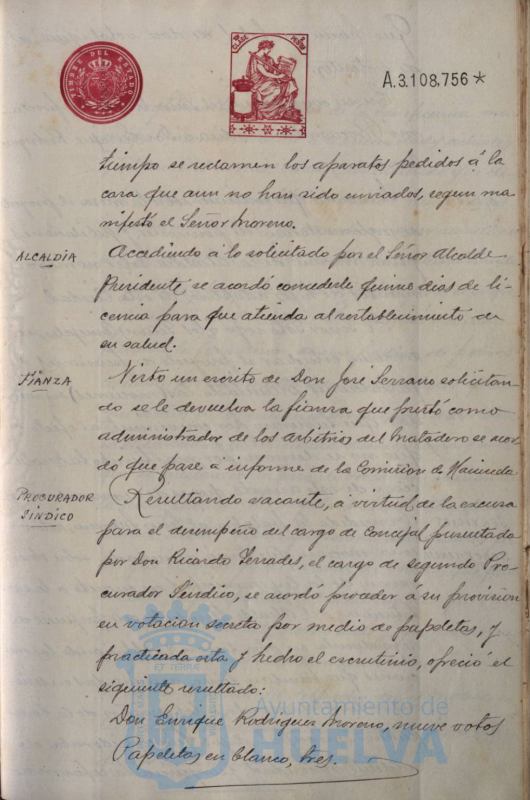 TIMBRE DEL ESTADO
CLASE
A.3.108.756 *
tiempo se reclamen los aparatos pedidos á la
casa que aun no han sido enviados, segun ma
nifestó el Señor Moreno.
ALCALDÍA
Accediendo á lo solicitado por el Señor Alcalde
Presidente se acordó concederle quince dias de li-
cencia para que atienda al restablecimiento de
su salud.
FIANZA
Visto un escrito de Don José Serrano solicitan-
do se le devuelva la fianza que prestó como
administrador de los arbitrios del Matadero se acor
dó que pase á informe de la Comision de Hacienda
PROCURADOR
SÍNDICO
Resultando vacante, á virtud de la excusa
para el desempeño del cargo de Concejal presentada
por Don Ricardo Terrades, el cargo de segundo Pro-
curador Síndico, se acordó proceder á su provision
en votacion secreta por medio de papeletas, y
practicada esta y hecho el escrutinio, ofreció el
siguiente resultado:
Don Enrique Rodriguez Moreno, nueve votos
Papeletas en blanco, tres.
ET TERRÆ
Ayuntamiento de
HUELVA